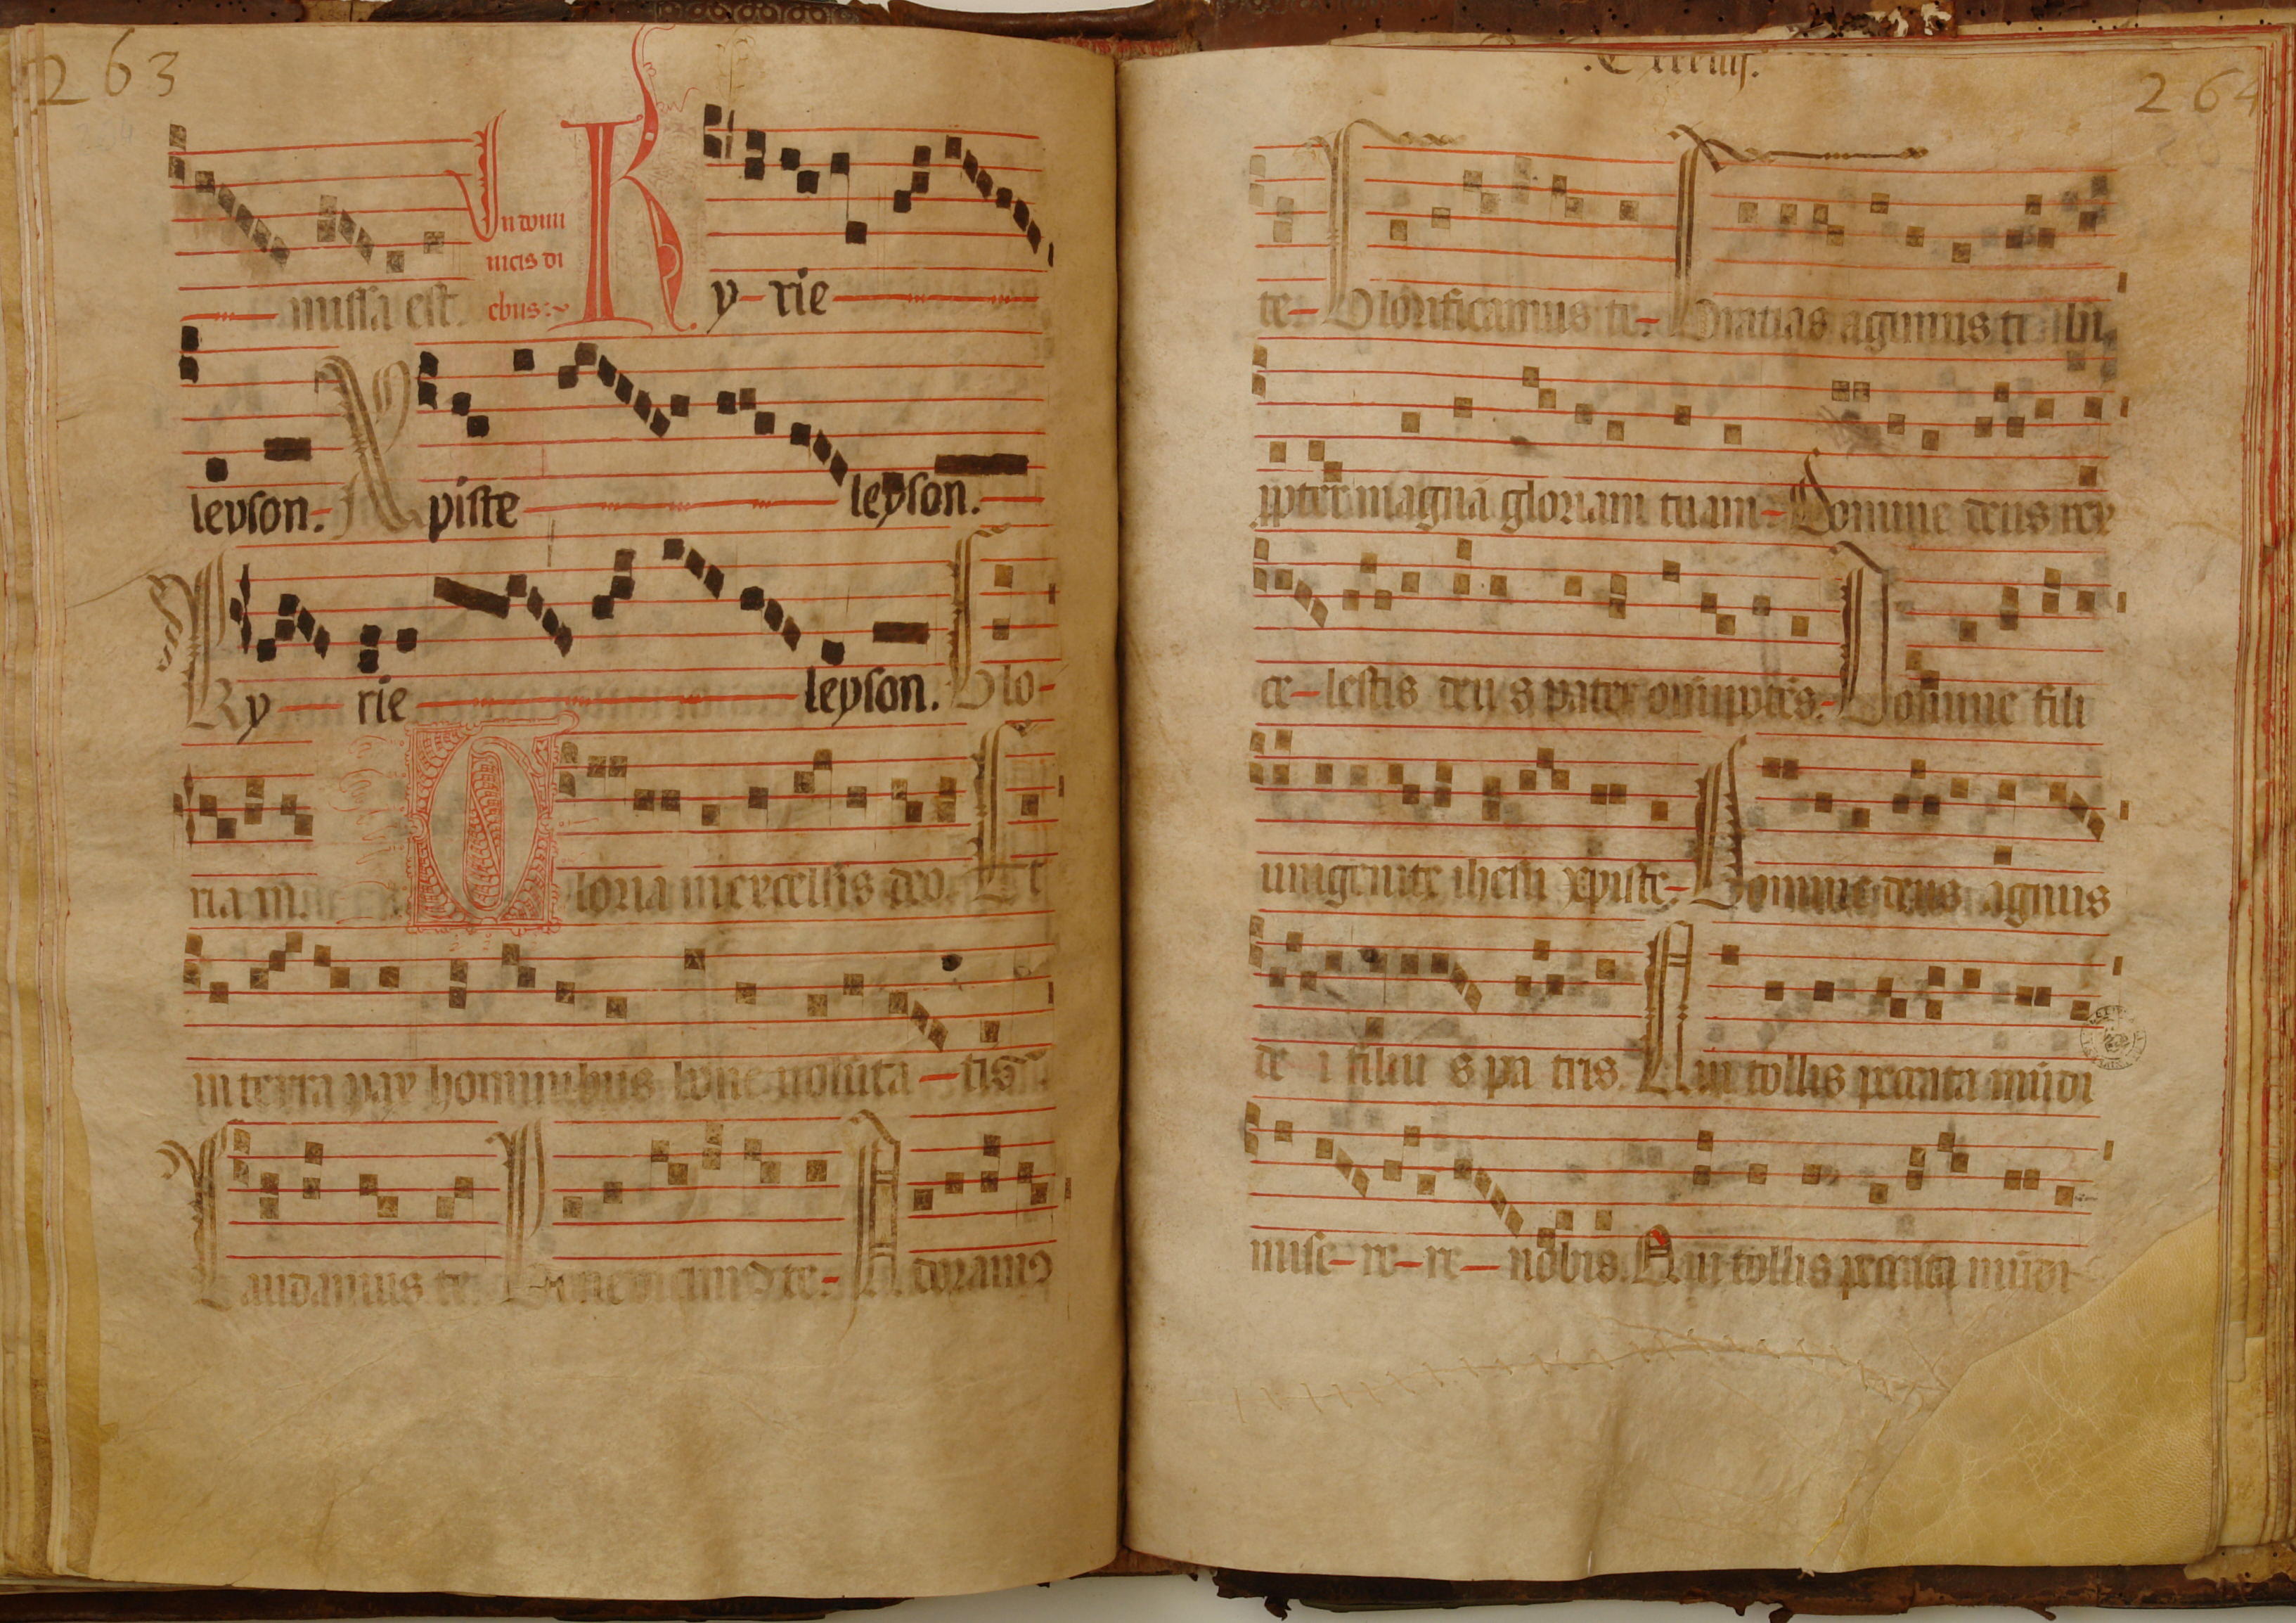 263
missa est. In domi
nicis di
ebus:~ Ky-rie
leyson. Xpiste leyson.
Ky-rie leyson. Glo-
ria in Gloria in excelsis deo. Et
in terra pax hominibus bone volunta-tis
Laudamus te. Benedicimus te- Adoramus
264
te- Glorificamus te- Gratias agimus ti bi
ppter magnā gloriam tuam- Domine deus rex
ce-lestis deu s pater omipotēs- Domine fili
unigenite ihesu xpiste- Domine deus agnus
de i filiu s pa tris. Qui tollis peccata mūdi
mise-re-re-nobis. Qui tollis peccata mūdi